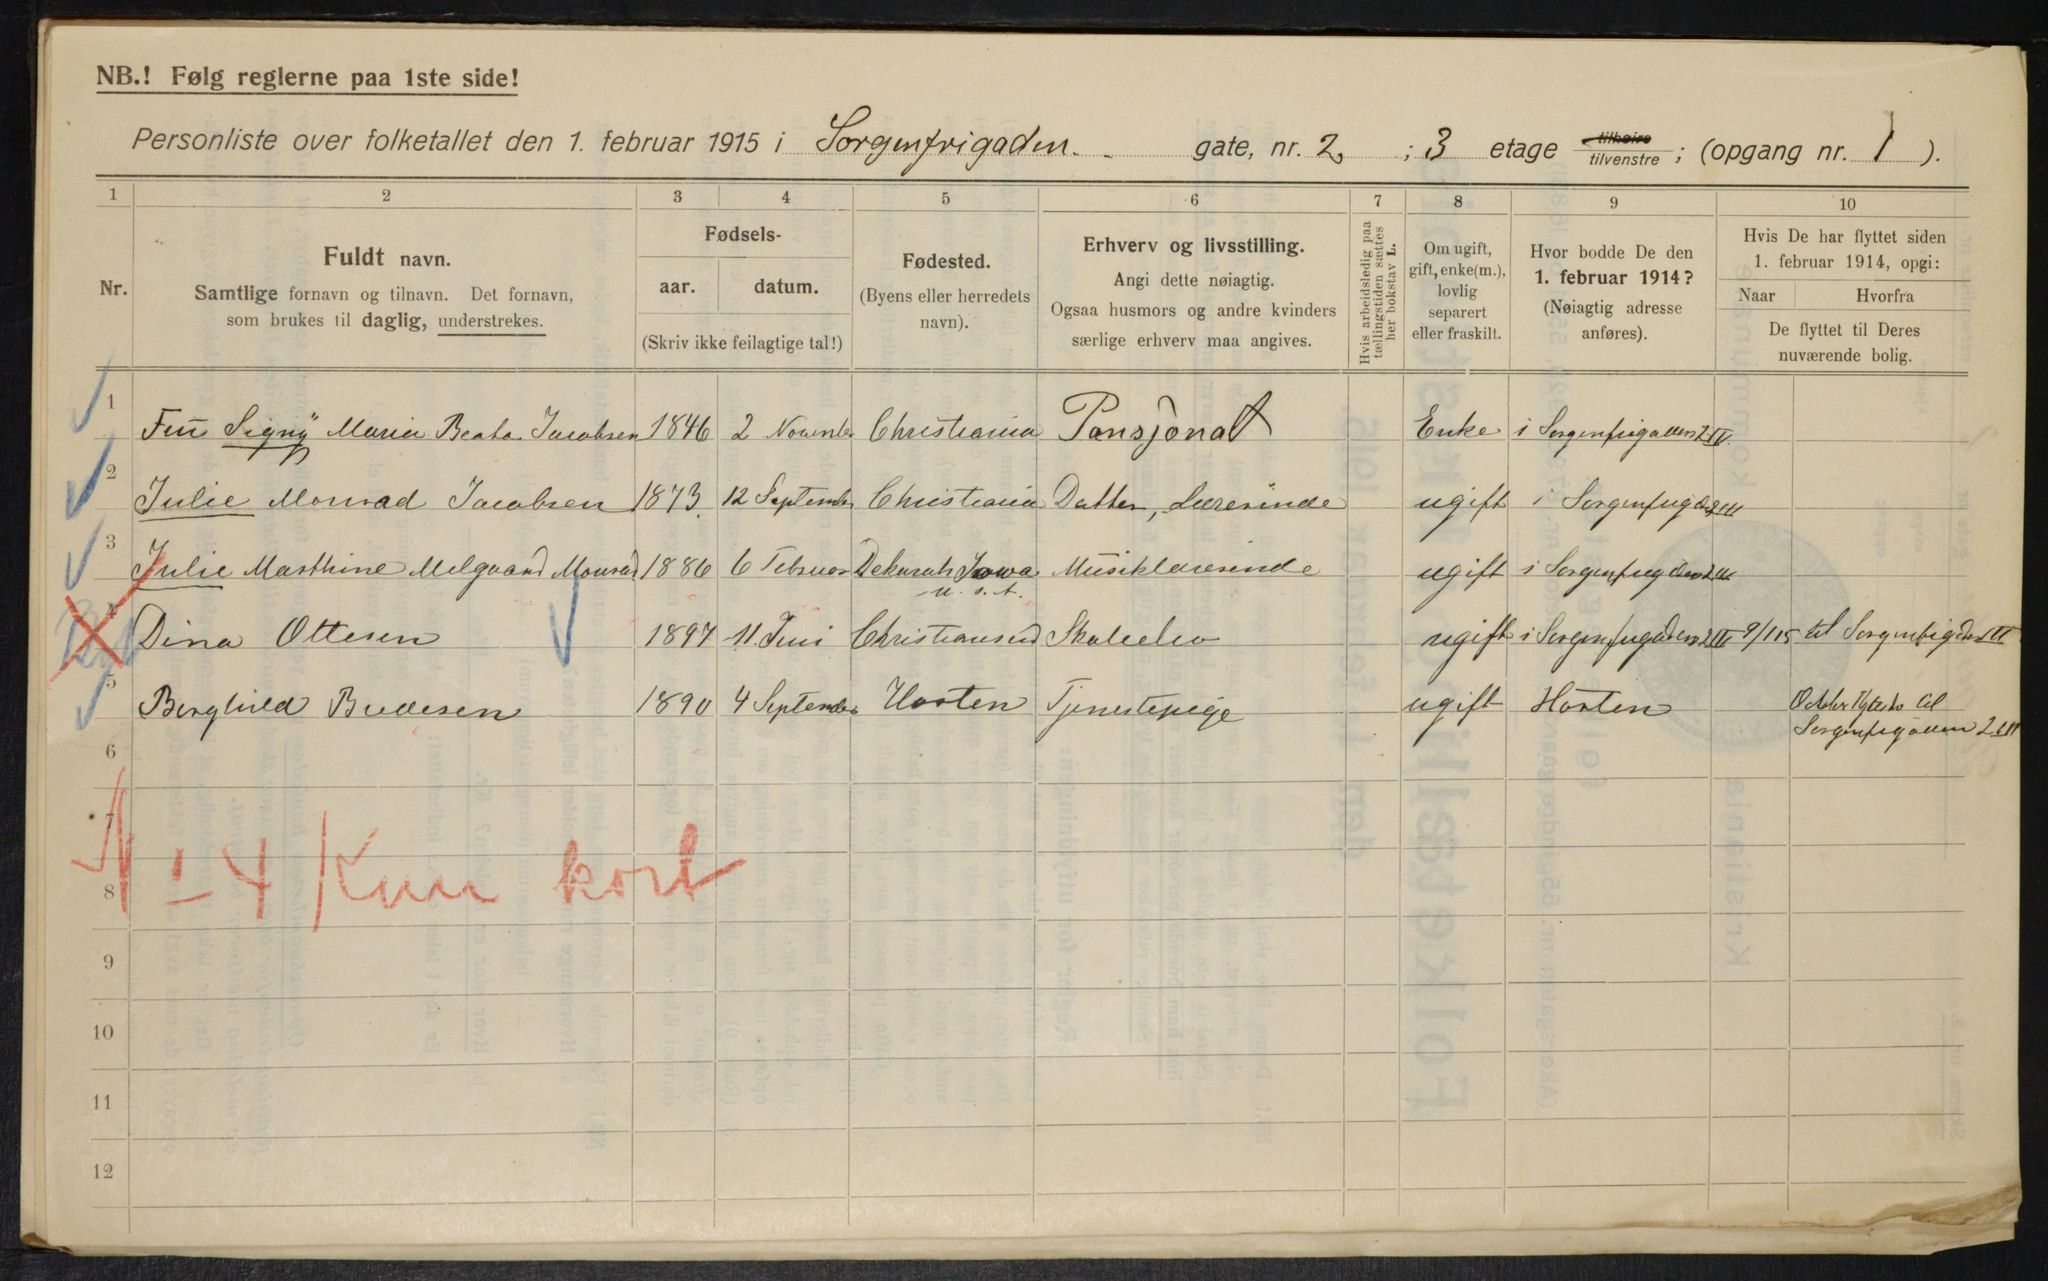 NB.! Følg reglerne paa 1ste side!
Personliste over folketallet den 1. februar 1915 i Sorgenfrigaden. gate, nr. 2, ; 3 etage tilhøire tilvenstre ; (opgang nr. 1 ).
1 2 3 4 5 6 7 8 9 10
Nr.
Fuldt navn.
Samtlige fornavn og tilnavn. Det fornavn,
som brukes til daglig, understrekes.
Fødsels-
aar. datum.
(Skriv ikke feilagtige tal!)
Fødested.
(Byens eller herredets
navn).
Erhverv og livsstilling.
Angi dette nøiagtig.
Ogsaa husmors og andre kvinders
særlige erhverv maa angives.
Hvis arbeidsledig paa
tællingstiden sættes
her bokstav L.
Om ugift,
gift, enke(m.),
lovlig
separert
eller fraskilt.
Hvor bodde De den
1. februar 1914?
(Nøiagtig adresse
anføres).
Hvis De har flyttet siden
1. februar 1914, opgi:
Naar Hvorfra
De flyttet til Deres
nuværende bolig.
1 Signy Maria Beata Jacobsen 1846 2 Novembr Christiania Pansjonat Enke i Sorgenfrigaden 2 IV.
2 Julie Monrad Jacobsen 1873 12 September Christiania Datter, Lærerinde ugift i Sorgenfrigd 2 III
3 Julie Marthine Melgaard Monrad 1886 6 Februar Dekorah Iowa Musiklærerinde ugift i Sorgenfrigden 2 III
U. S. A.
4 Dina Ottesen 1897 11 Juni Christiansund Skoleelev ugift i Sorgenfrigaden 2 III 9/1 15 til Sorgenfrigden III
5 Borghild Bredesen 1890 4 September Horten Tjenestepige ugift Horten til
Sorgenfrigaden 2 III
6
7
No 4 Kun kort
8
9
10
11
12